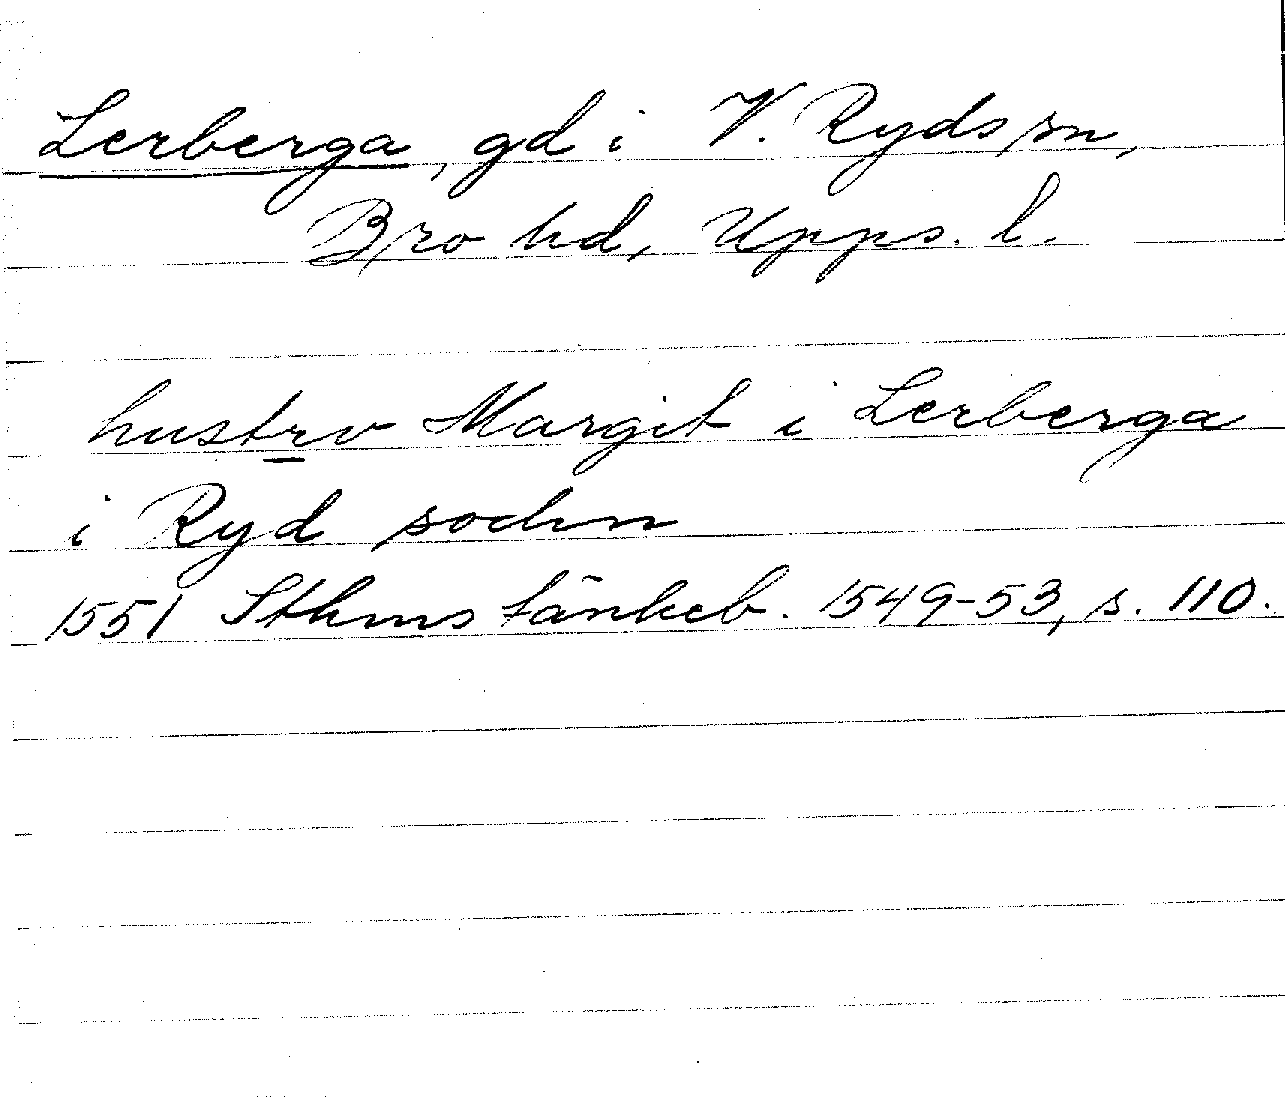 Lerberga, gd i V. Ryds sn,
Bro hd, Upps. l.
hustrv Margit i Lerberga
i Ryd sochn
1551 Sthms tänkeb. 1549-53, s. 110.